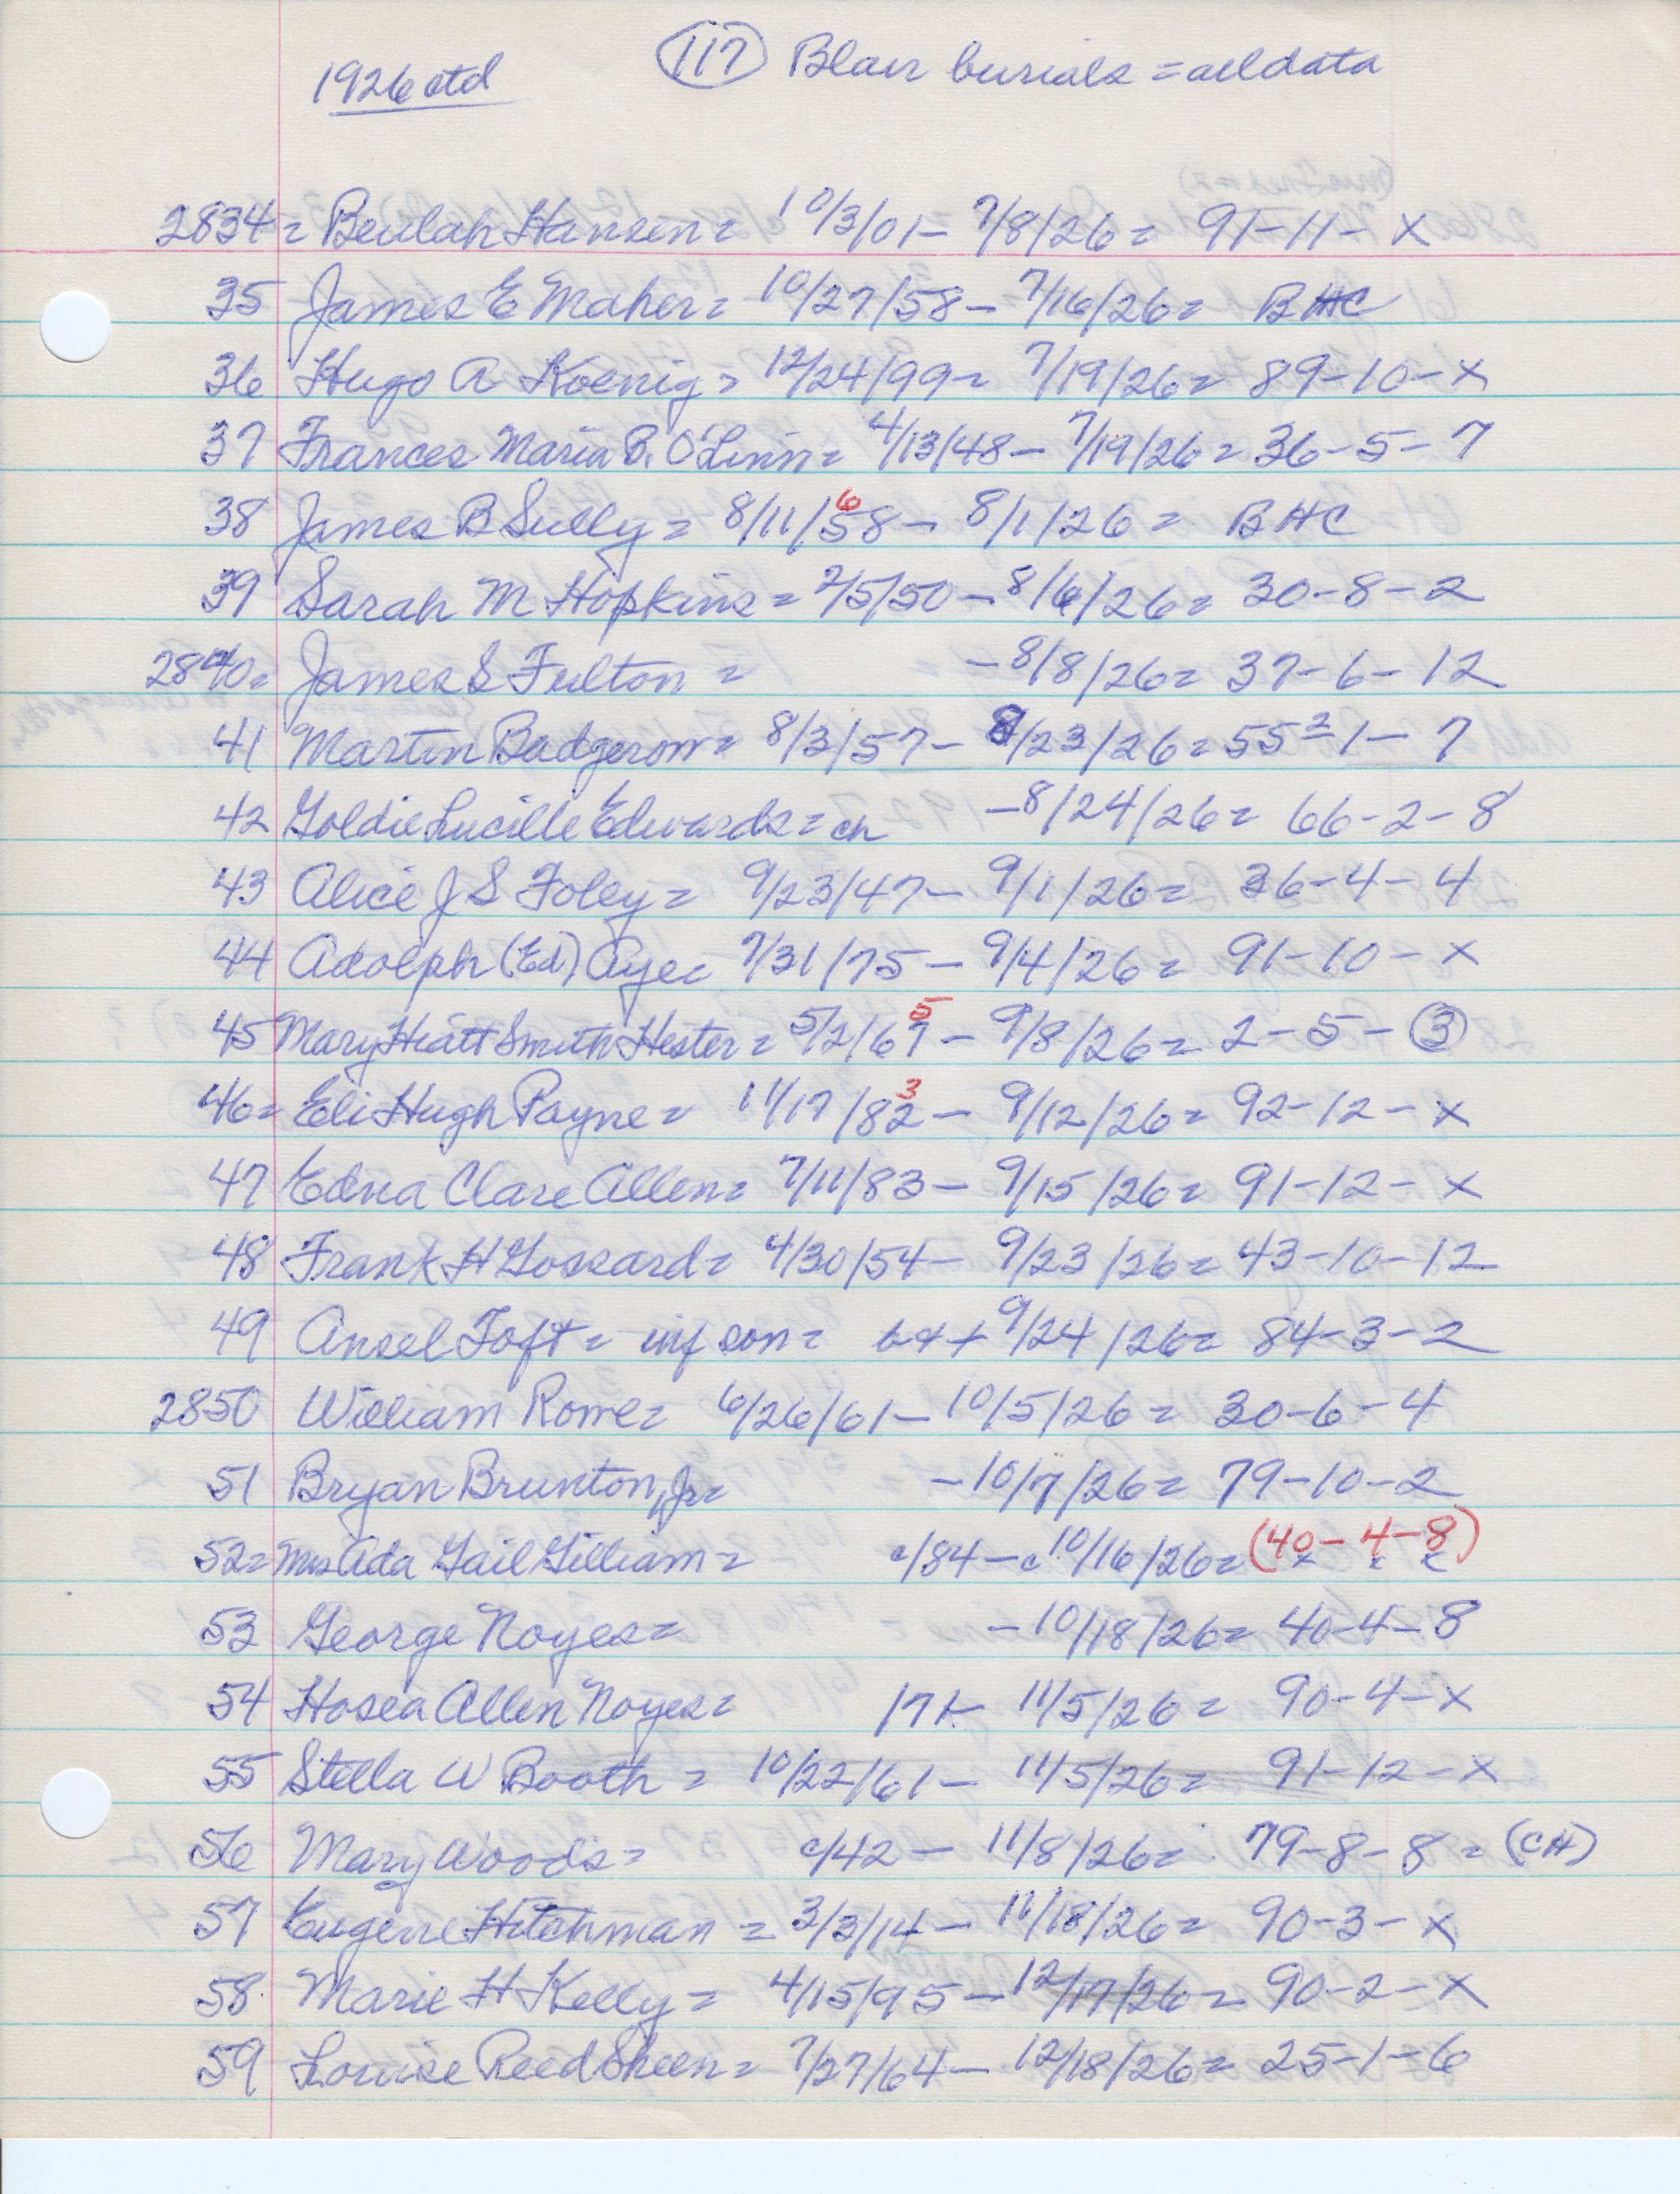 1926 ctd (117) Blair burials = all data
2834 = Beulah Hansen = 10/3/01 - 7/8/26 = 91-11-X
35 James E Maher = 10/27/58 - 7/16/26 = BHC
36 Hugo A Koenig = 12/24/99 = 7/19/26 = 89-10-X
37 Frances Maria B. O'Linn = 4/13/48 - 7/19/26 = 36-5-7
6
38 James B Sully = 8/11/58 - 8/1/26 = BHC
39 Sarah M Hopkins = 2/5/50 - 8/6/26 = 30-8-2
2840 = James S Fulton = - 8/8/26 = 37-6-12
41 Martin Badgerow = 8/3/57 - 8/23/26 = 55²-1-7
42 Goldie Lucille Edwards = ch - 8/24/26 = 66-2-8
43 Alice J S Foley = 9/23/47 - 9/1/26 = 36-4-4
44 Adolph (Ed) Aye = 7/31/75 - 9/4/26 = 91-10-X
5
45 Mary Hiatt Smith Hester = 5/2/67 - 9/8/26 = 2-5-(3)
3
46 = Eli Hugh Payne = 11/17/82 - 9/12/26 = 92-12-X
47 Edna Clare Allen = 7/11/83 - 9/15/26 = 91-12-X
48 Frank H Gossard = 4/30/54 - 9/23/26 = 43-10-12
49 Ansel Toft = inf son = b&+ 9/24/26 = 84-3-2
2850 William Rowe = 6/26/61 - 10/5/26 = 30-6-4
51 Bryan Brunton, Jr = - 10/7/26 = 79-10-2
52 = Mrs Ada Gail Gilliam = c/84 - c 10/16/26 = (40-4-8)
53 George Noyes = - 10/18/26 = 40-4-8
54 Hosea Allen Noyes = /71 - 11/5/26 = 90-4-X
55 Stella W Booth = 10/22/61 - 11/5/26 = 91-12-X
56 Mary Woods = c/42 - 11/8/26 = 79-8-8 = (CH)
57 Eugene Hitchman = 3/3/14 - 11/18/26 = 90-3-X
58 Marie H Kelly = 4/15/95 - 12/17/26 = 90-2-X
59 Louise Reed Sheen = 7/27/64 - 12/18/26 = 25-1-6